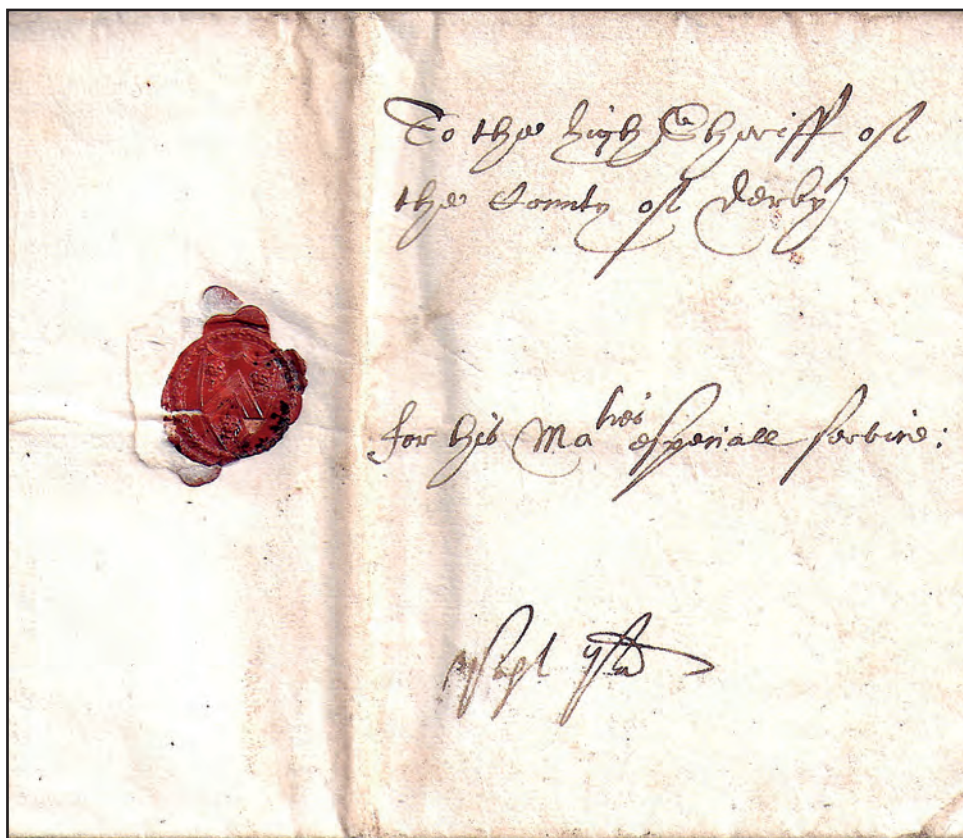 To the high Sheriff of
the County of Derby
for his Ma^ties especiall service: